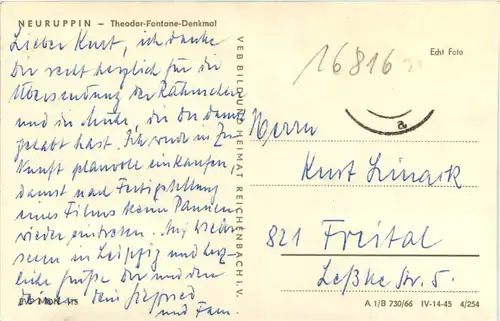 NEURUPPIN – Theodor-Fontane-Denkmal
Lieber Kurt, ich danke
Dir recht herzlich für die
Übersendung der Rähmchen
und die Mühe, die Du damit
gehabt hast. Ich werde in Zu-
kunft planvoll einkaufen,
damit nach Fertigstellung
eines Films keine Pannen
wieder eintreten. Auf Wieder-
sehen in Leipzig und herz-
liche Grüße Dir und den
Deinen Dein Siegfried
und Fam.
VEB BILD UND HEIMAT REICHENBACH I. V.
Echt Foto
16816
a
Herrn
Kurt
821 Freital
Leßke Str. 5
A 1/B 730/66 IV-14-45 4/254